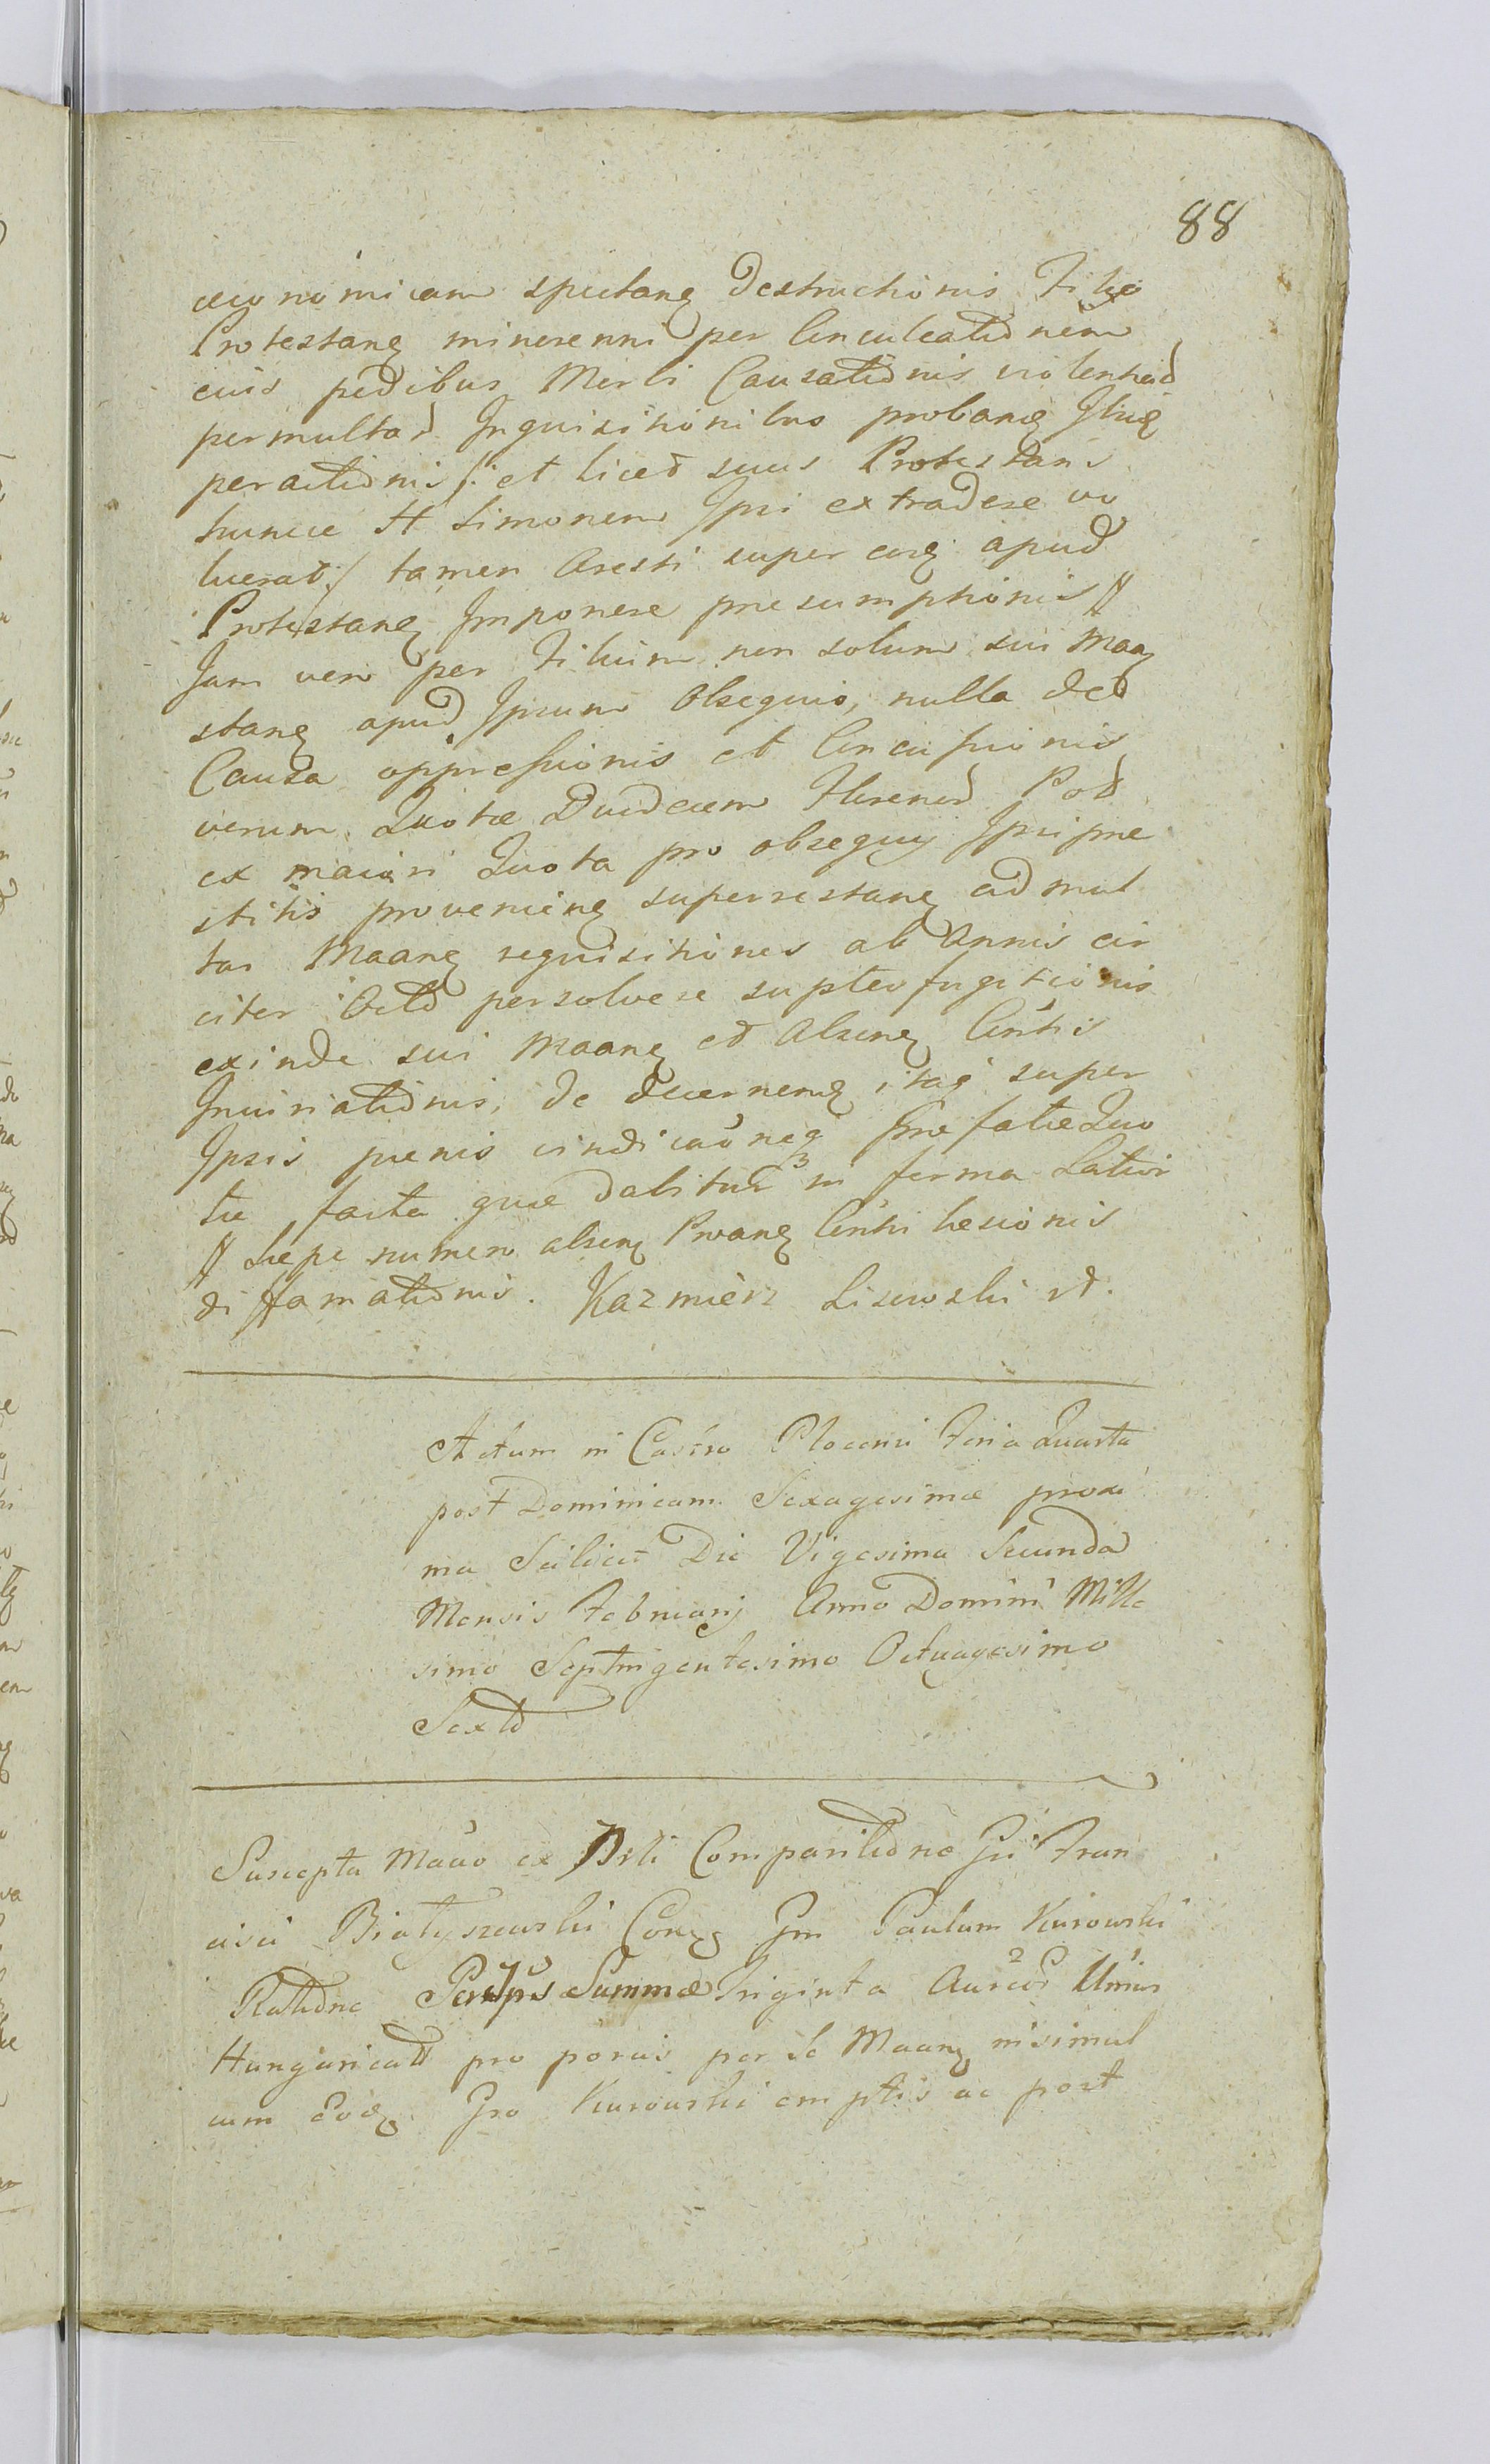 88
œconomicam spectang Destructionis Filio
Protestang minorenni per Conculcationem
eius pedibus Merli Causationis violentas
permultas Inquisitionibus probang Ibig
peractionis /: et licet suus Protestans
hunce H Simonem Ipsi extradere vo
luerat :/ tamen Aresti super eog apud
Protestang Imponere presumptionis //
Jam vero per Filium non solum sui Maa
stang apud Ipsum Obsequio, nulla de
Causa oppressionis et Concussionis
verum Quotæ Duodecem Floreno Pol
ex maiori Quota pro obsequy Ipsi pre
stitis provenieng superrestang ad mul
tas Maang requisitiones ab Annis cir
citer Octo persolvere supterfugitionis
exinde sui Maang et Abseng Contis
Iniuriationis, de decerneng itaq super
Ipsis penis vindicaoneg Prefatæ Quo
tæ facta quæ dabitur in forma Latiori
// Sæpe numero abseng Proang Conti lesionis
diffamationis. Kazmierz Lisewski st.
Actum in Castro Plocensi Feria Quarta
post Dominicam Sexagesimæ proxi
ma Scilicet Die Vigesima Secunda
Mensis Februarij Anno Domini Mille
simo Septingentesimo Octuagesimo
Sexto
Suscepta Maāo ex Prti Comparitione Gsi Fran
cisci Białyszewski Cong Gm Paulum Kurowski
Ratione Summæ Triginta Aureor Unius
Hungaricali pro porcis per Se Maang insimul
cum Eodg Gso Kurowski emptis ac post